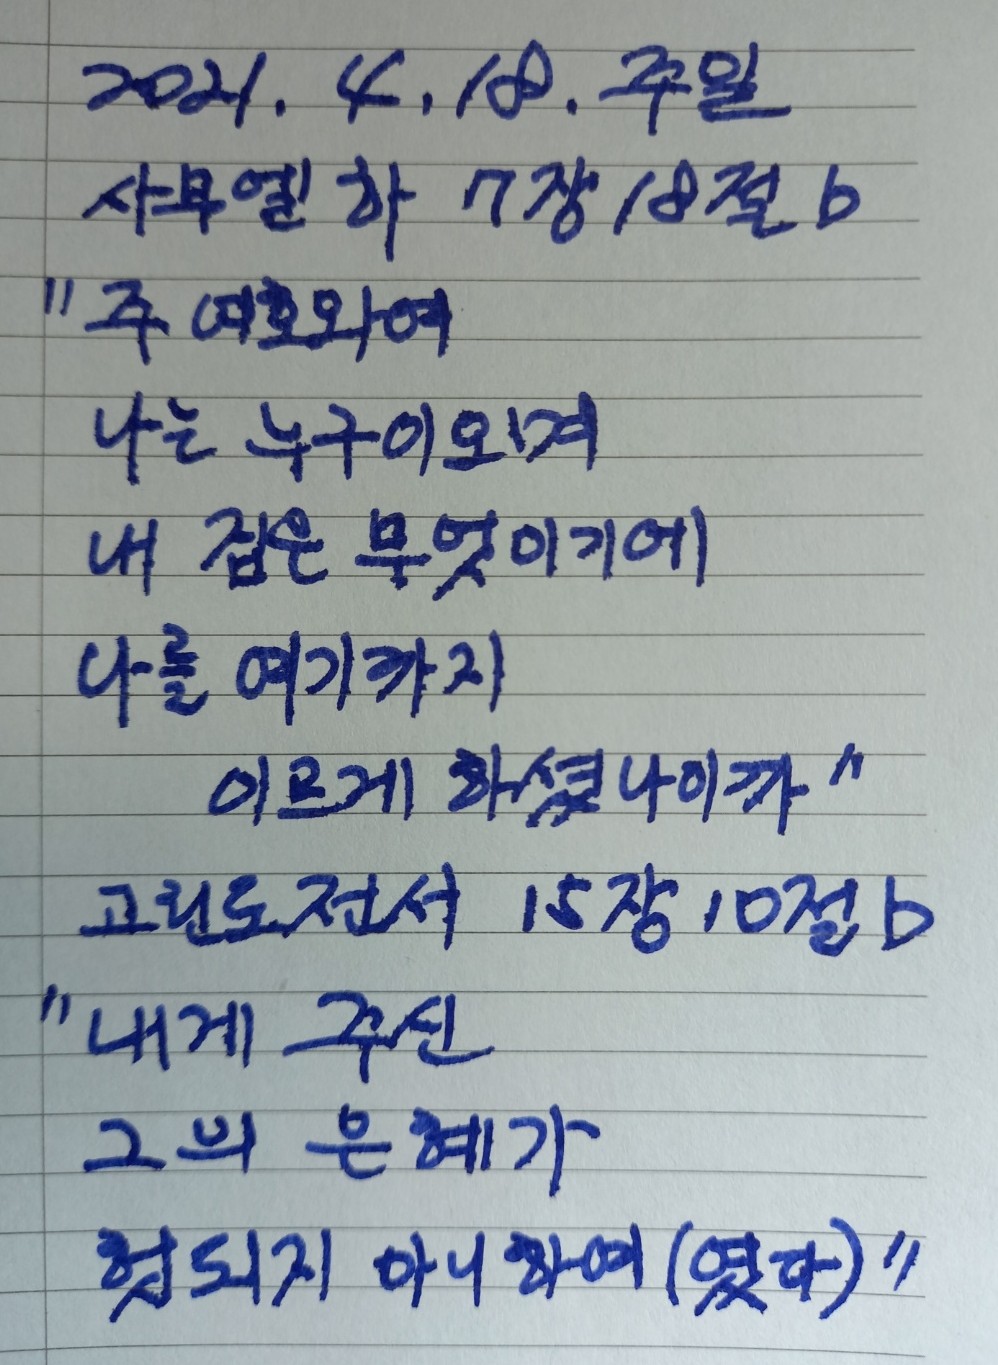 2021. 4. 18. 주일
사무엘 하 7장 18절 b
"주 여호와여
나는 누구이오며
내 집은 무엇이기에
나를 여기까지
이르게 하셨나이까"
고린도전서 15장 10절 b
"내게 주신
그의 은혜가
헛되지 아니하여(였다)"